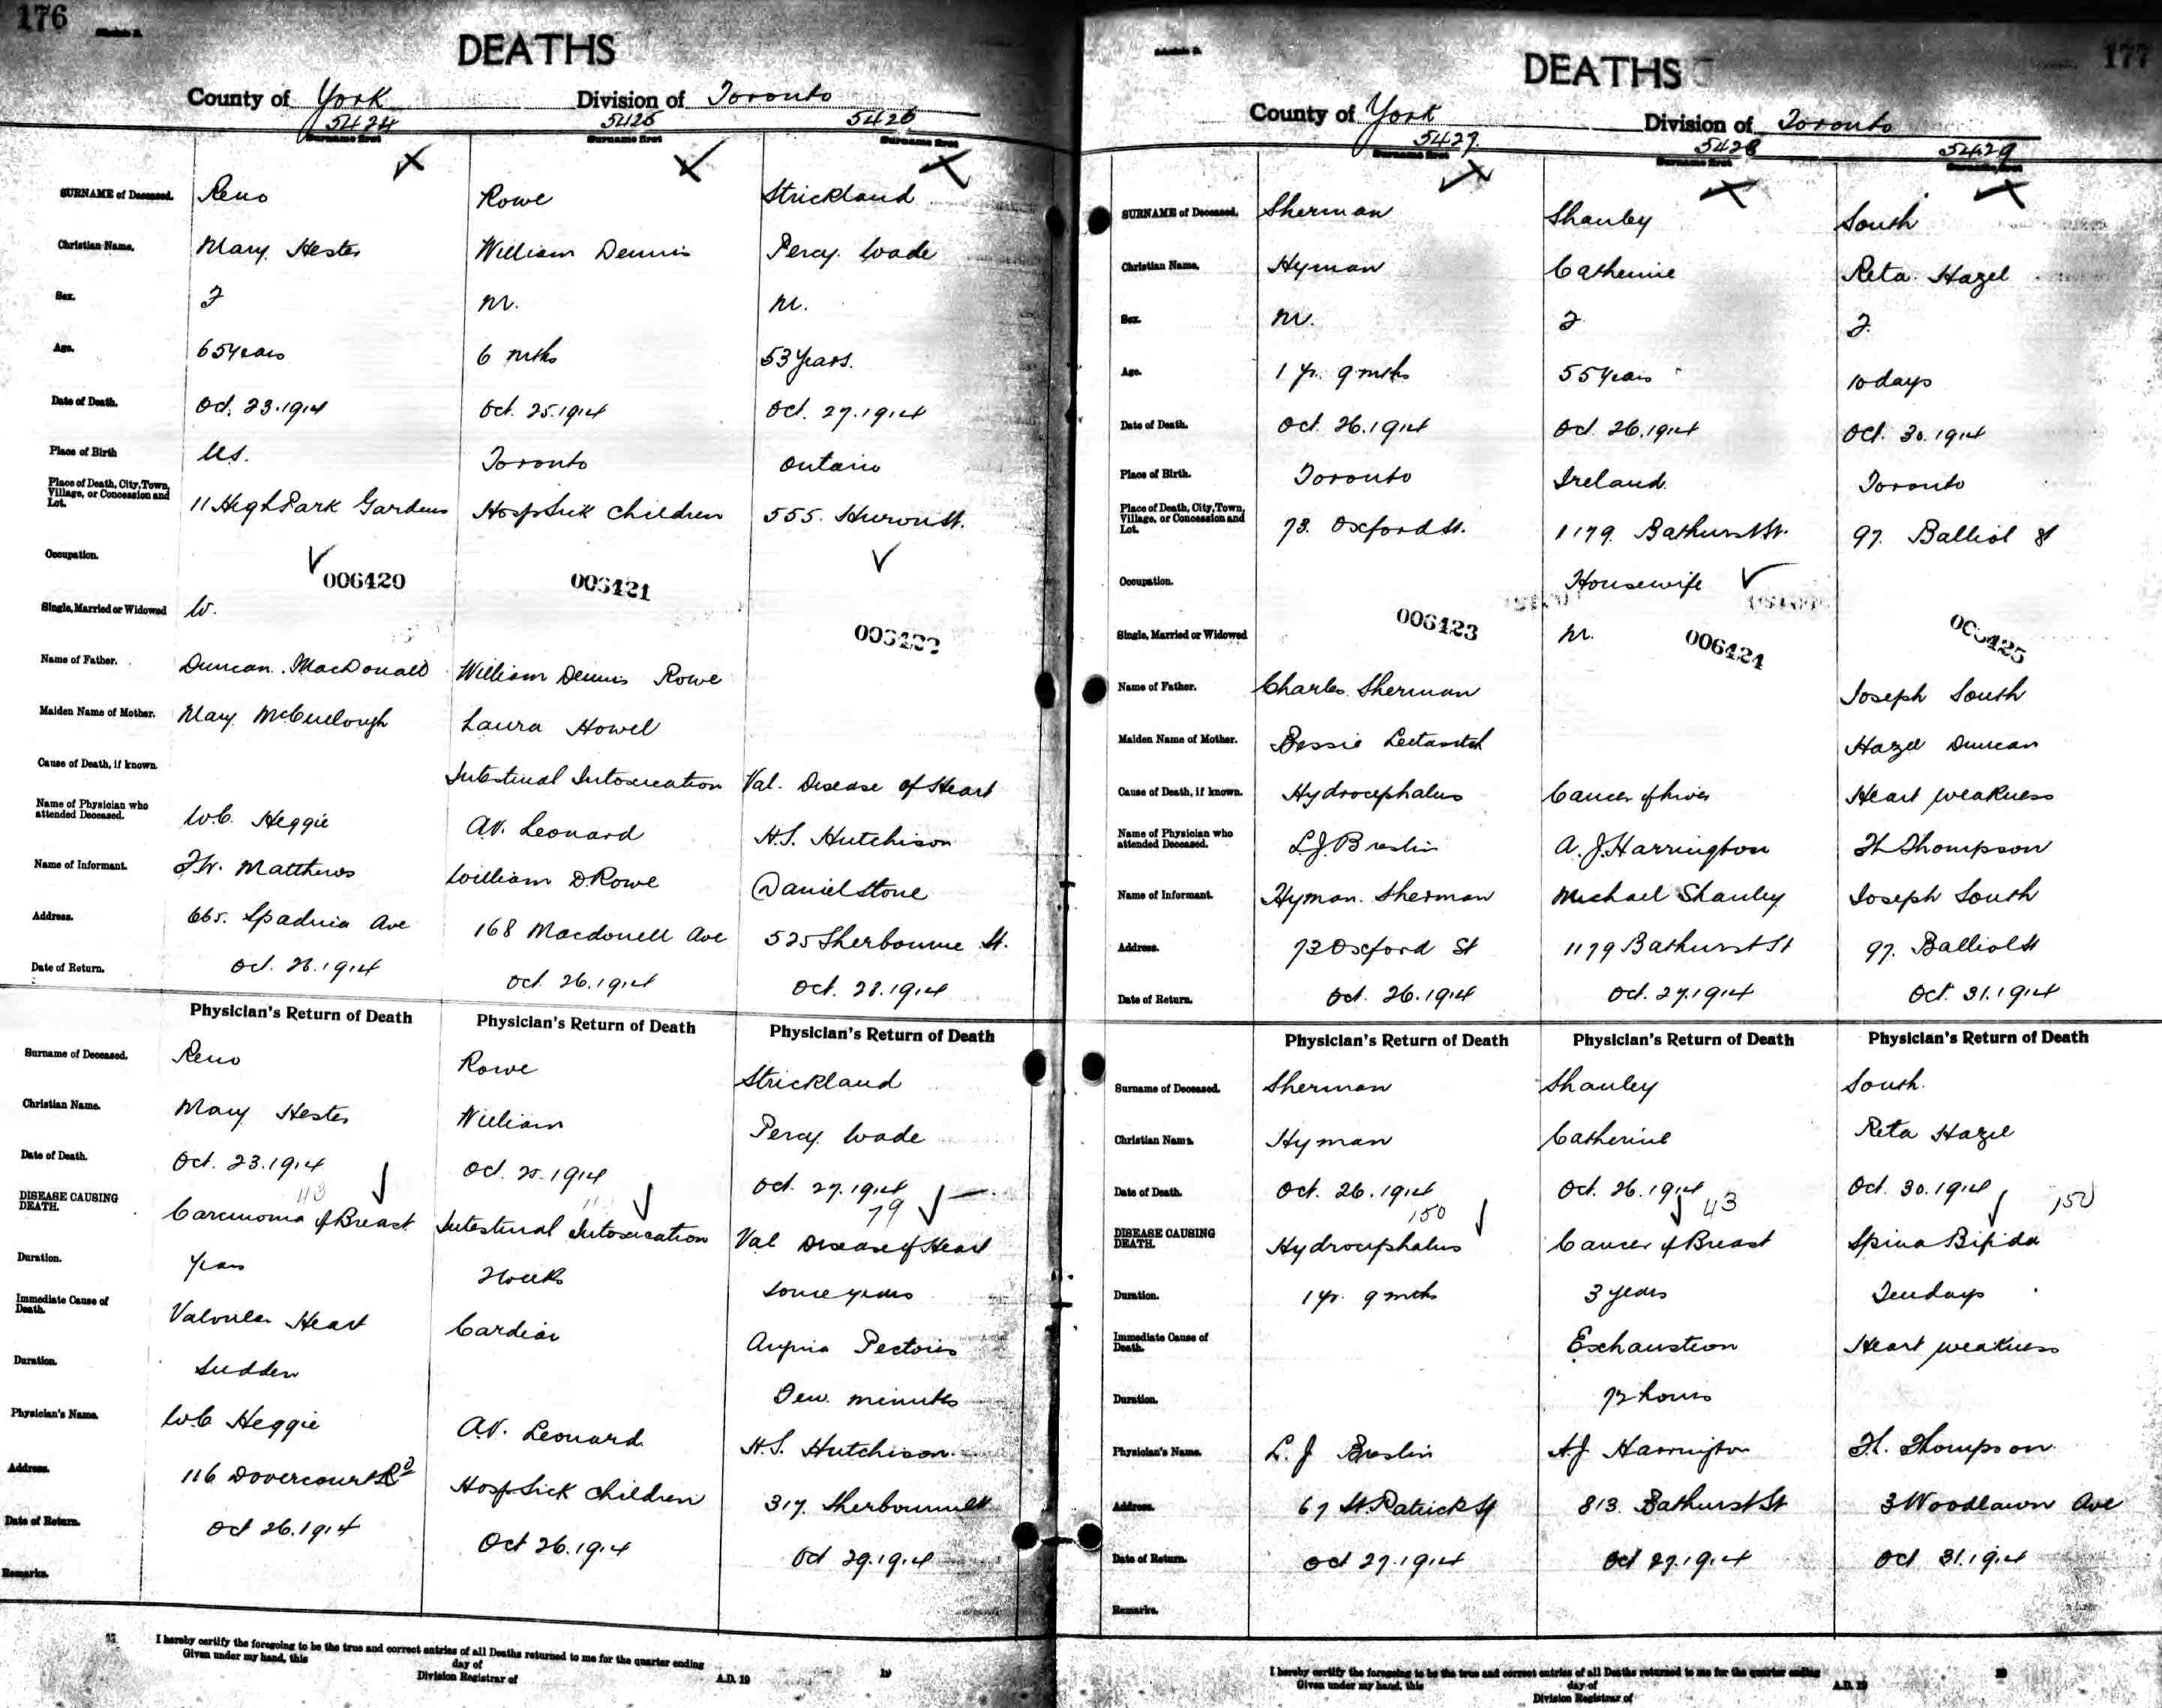 176
DEATHS
County of York Division of Toronto
5424 5425 5426
Surname first Surname first Surname first
SURNAME of Deceased. Reno Rowe Strickland
Christian Name. Mary Hester William Dennis Percy Wade
Sex. F M. M.
Age. 65 Years 6 mths 53 Years.
Date of Death. Oct. 23.1914 Oct. 25.1914 Oct. 27.1914
Place of Birth U.S. Toronto Ontario
Place of Death, City, Town, Village, or Concession and Lot. 11 High Park Gardens Hosp Sick Children 555. Huron St.
Occupation.
006420 006421
Single, Married or Widowed W.
006422
Name of Father. Duncan MacDonald William Dennis Rowe
Maiden Name of Mother. Mary McCullough Laura Howel
Cause of Death, if known. Intestinal Intoxication Val. Disease of Heart
Name of Physician who attended Deceased. W.C. Heggie A.V. Leonard H.S. Hutchison
Name of Informant. F.W. Matthews William D. Rowe Daniel Stone
Address. 665. Spadina Ave 168 Macdonell Ave 525 Sherbourne St.
Date of Return. Oct. 26.1914 Oct. 26.1914 Oct. 28.1914
Physician's Return of Death Physician's Return of Death Physician's Return of Death
Surname of Deceased. Reno Rowe Strickland
Christian Name. Mary Hester William Percy Wade
Date of Death. Oct. 23.1914 Oct. 25.1914 Oct. 27.1914
43 79
DISEASE CAUSING DEATH. Carcinoma of Breast Intestinal Intoxication Val Disease of Heart
Duration. Years 2 Weeks Some years
Immediate Cause of Death. Valvular Heart Cardiac Angina Pectoris
Duration. Sudden Few minutes
Physician's Name. W.C Heggie A.V. Leonard H.S. Hutchison
Address. 116 Dovercourt Rd Hosp Sick Children 317. Sherbourne St
Date of Return. Oct 26.1914 Oct 26.1914 Oct 29.1914
Remarks.
I hereby certify the foregoing to be the true and correct entries of all Deaths returned to me for the quarter ending 19
Given under my hand, this day of
Division Registrar of A.D. 19
177
DEATHS
County of York Division of Toronto
5427. 5428 5429
Surname first Surname first Surname first
SURNAME of Deceased. Sherman Shanley South
Christian Name. Hyman Catherine Reta Hazel
Sex. M. F F.
Age. 1 yr. 9 mths 55 Years 10 days
Date of Death. Oct. 26.1914 Oct 26.1914 Oct. 30.1914
Place of Birth. Toronto Ireland. Toronto
Place of Death, City, Town, Village, or Concession and Lot. 73. Oxford St. 1179. Bathurst St. 97. Balliol St
Occupation. Housewife
Single, Married or Widowed 006423 M. 006424 006425
Name of Father. Charles Sherman Joseph South
Maiden Name of Mother. Bessie Hazel Duncan
Cause of Death, if known. Hydrocephalus Cancer of Liver Heart weakness
Name of Physician who attended Deceased. L.J. Breslin A.J. Harrington Thompson
Name of Informant. Hyman. Sherman Michael Shanley Joseph South
Address. 73 Oxford St 1179 Bathurst St 97. Balliol St
Date of Return. Oct. 26.1914 Oct. 27.1914 Oct. 31.1914
Physician's Return of Death Physician's Return of Death Physician's Return of Death
Surname of Deceased. Sherman Shanley South.
Christian Name. Hyman Catherine Reta Hazel
Date of Death. Oct. 26.1914 Oct. 26.1914 Oct. 30.1914
150 43 150
DISEASE CAUSING DEATH. Hydrocephalus Cancer of Breast Spina Bifida
Duration. 1 yr. 9 mths 3 years Ten days
Immediate Cause of Death. Exhaustion Heart weakness
Duration. 72 hours
Physician's Name. L.J Breslin A.J Harrington Thompson
Address. 67 St. Patrick St 813. Bathurst St 3 Woodlawn Ave
Date of Return. Oct 27.1914 Oct 27.1914 Oct 31.1914
Remarks.
I hereby certify the foregoing to be the true and correct entries of all Deaths returned to me for the quarter ending 19
Given under my hand, this day of A.D. 19
Division Registrar of